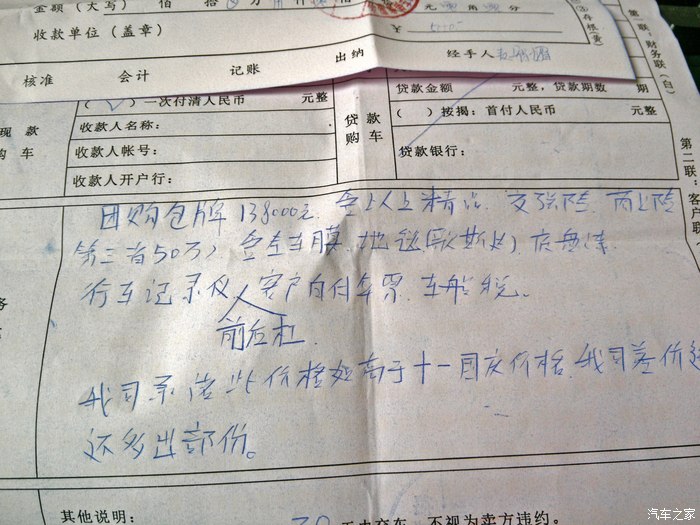 金额（大写） 佰 拾 万 仟 佰 拾 元 角 分
③存根（黄）
收款单位（盖章）
￥
核准 会计 记账 出纳 经手人
第一联：财务联（白）
（ ）一次付清人民币 元整
贷款金额 元整，贷款期数 期
现款购车
收款人名称：
贷款购车
（ ）按揭：首付人民币 元整
收款人帐号：
贷款银行：
收款人开户行：
第二联：客户联
团购包牌138000元. 含以上精品. 交强险. 商业险
第三者50万） 含全车膜. 地毯 底盘
行车记录仪 客户自付车票. 车船税。
前后杠
我司承诺此价格如高于十一国庆价格. 我司差价
还多出部份。
其他说明：
30 天内交车，不视为卖方违约。
汽车之家